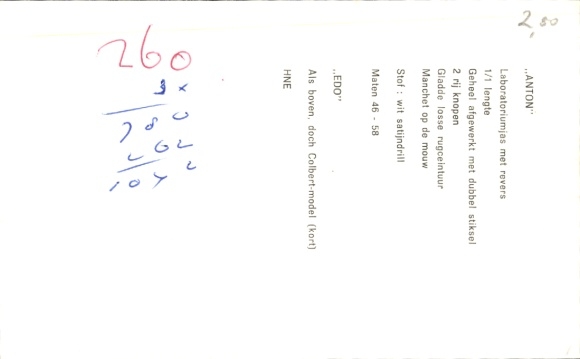 2,50
„ANTON"
Laboratoriumjas met revers
1/1 lengte
Geheel afgewerkt met dubbel stiksel
2 rij knopen
Gladde losse rugceintuur
Manchet op de mouw
Stof : wit satijndrill
Maten 46 - 58
„EDO"
Als boven, doch Colbert-model (kort)
HNE
260
780